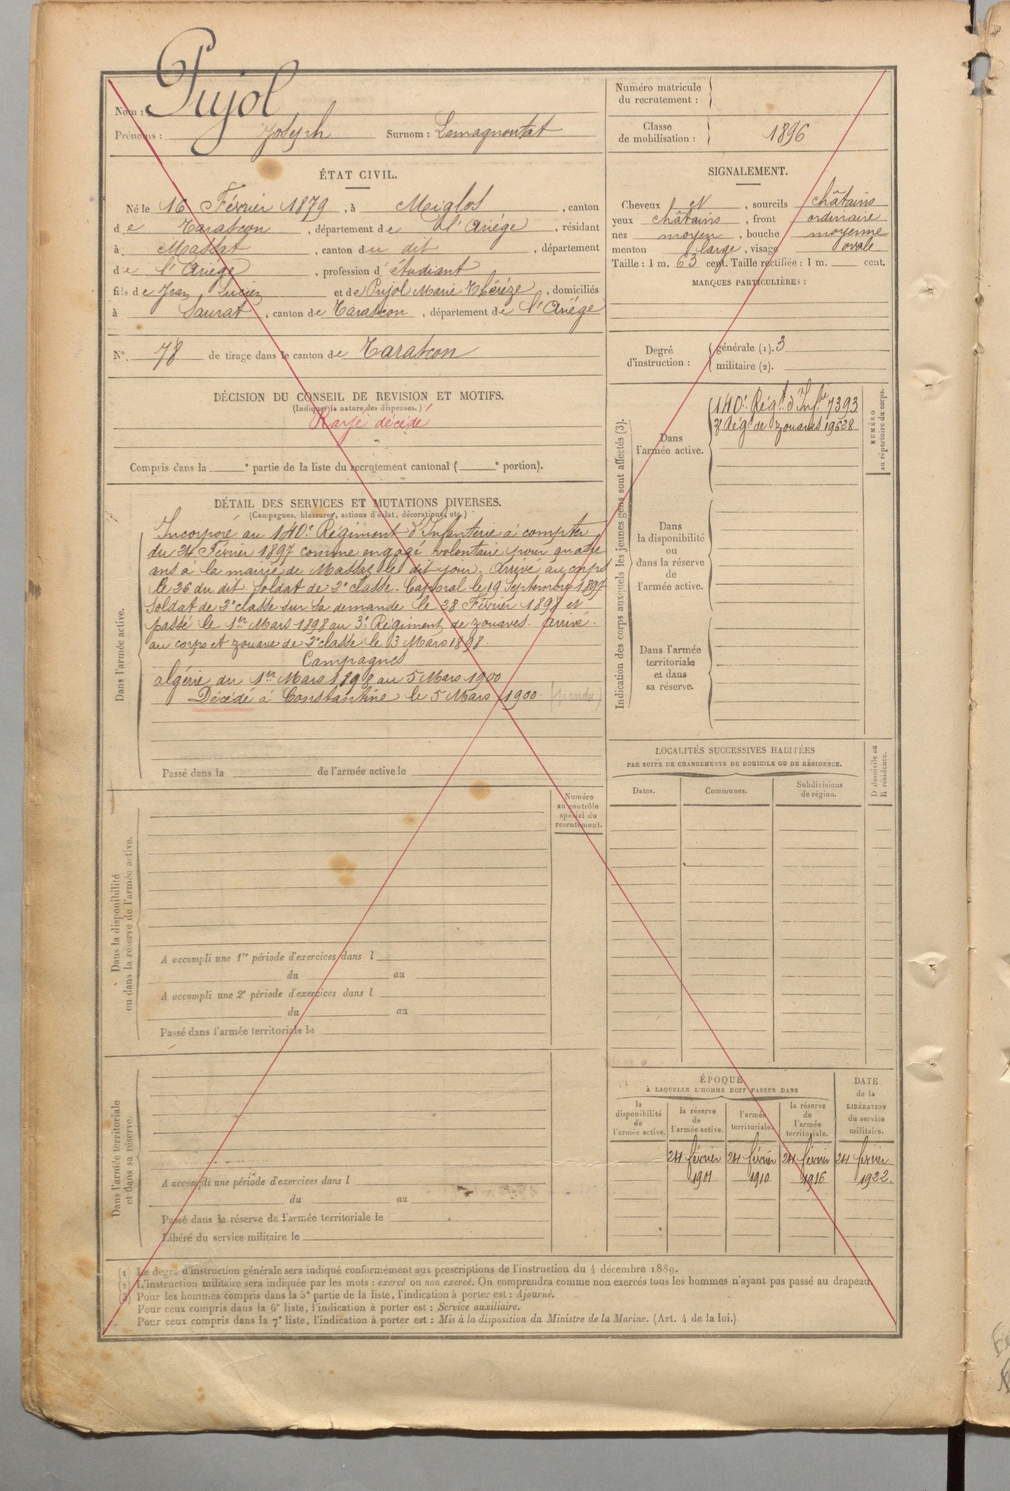 Nom : Pujol
Prénoms : Joseph Surnom : Lamagnoutat
ÉTAT CIVIL.
Né le 16 Février 1879, à Miglos, canton
de Tarascon, département de l'Ariége, résidant
à Massat, canton du dit, département
de l'Ariége, profession d'étudiant
fils de Jean, Lucien et de Pujol Marie Thérèze, domiciliés
à Saurat, canton de Tarascon, département de l'Ariége
N°. 78 de tirage dans le canton de Tarascon
DÉCISION DU CONSEIL DE REVISION ET MOTIFS.
(Indiquer la nature des dispenses.)
Rayé décédé
Compris dans la ____e partie de la liste du recrutement cantonal (____e portion).
DÉTAIL DES SERVICES ET MUTATIONS DIVERSES.
(Campagnes, blessures, actions d'éclat, décorations, etc.)
Dans l'armée active.
Incorporé au 140e Régiment d'Infanterie à compter
du 24 Février 1897 comme engagé volontaire pour quatre
ans à la mairie de Massat le dit jour, Arrivé au corps
le 26 du dit soldat de 2e classe. Caporal le 19 Septembre 1897
Soldat de 2e classe sur sa demande le 28 Février 1898 et
passé le 1er Mars 1898 au 3e Régiment de zouaves. Arrivé
au corps et zouave de 2e classe le 3 Mars 1898.
Campagnes
algérie du 1er Mars 1898 au 5 Mars 1900
Décédé à Constantine le 5 Mars 1900
Passé dans la ____ de l'armée active le
Dans la disponibilité
ou dans la réserve de l'armée active.
Numéro
au contrôle
spécial du
recrutement.
A accompli une 1re période d'exercices dans l
du au
A accompli une 2e période d'exercices dans l
du au
Passé dans l'armée territoriale le
Dans l'armée territoriale
et dans sa réserve.
A accompli une période d'exercices dans l
du au
Passé dans la réserve de l'armée territoriale le
Libéré du service militaire le
Numéro matricule
du recrutement :
Classe
de mobilisation : 1896
SIGNALEMENT.
Cheveux et, sourcils châtains
yeux châtains, front ordinaire
nez moyen, bouche moyenne
menton large, visage ovale
Taille : 1 m. 63 cent. Taille rectifiée : 1 m. ____ cent.
MARQUES PARTICULIÈRES :
Degré
d'instruction :
générale (1). 3
militaire (2).
Indication des corps auxquels les jeunes gens sont affectés (3).
NUMÉRO
au répertoire du corps.
Dans
l'armée active.
140e Régt d'Infie 7393
3e Rég. de zouaves 19628
Dans
la disponibilité
ou
dans la réserve
de
l'armée active.
Dans l'armée
territoriale
et dans
sa réserve.
LOCALITÉS SUCCESSIVES HABITÉES
PAR SUITE DE CHANGEMENTS DE DOMICILE OU DE RÉSIDENCE.
D domicile ou
R résidence.
Dates.
Communes.
Subdivisions
de région.
ÉPOQUE
À LAQUELLE L'HOMME DOIT PASSER DANS
DATE
de la
LIBÉRATION
du service
militaire.
la
disponibilité
de
l'armée active.
la réserve
de
l'armée active.
l'armée
territoriale.
la réserve
de
l'armée
territoriale.
24 février
1901
24 février
1910
24 février
1916
24 février
1922
(1) Le degré d'instruction générale sera indiqué conformément aux prescriptions de l'instruction du 4 décembre 1889.
(2) L'instruction militaire sera indiquée par les mots : exercé ou non exercé. On comprendra comme non exercés tous les hommes n'ayant pas passé au drapeau.
(3) Pour les hommes compris dans la 5e partie de la liste, l'indication à porter est : Ajourné.
Pour ceux compris dans la 6e liste, l'indication à porter est : Service auxiliaire.
Pour ceux compris dans la 7e liste, l'indication à porter est : Mis à la disposition du Ministre de la Marine. (Art. 4 de la loi.)